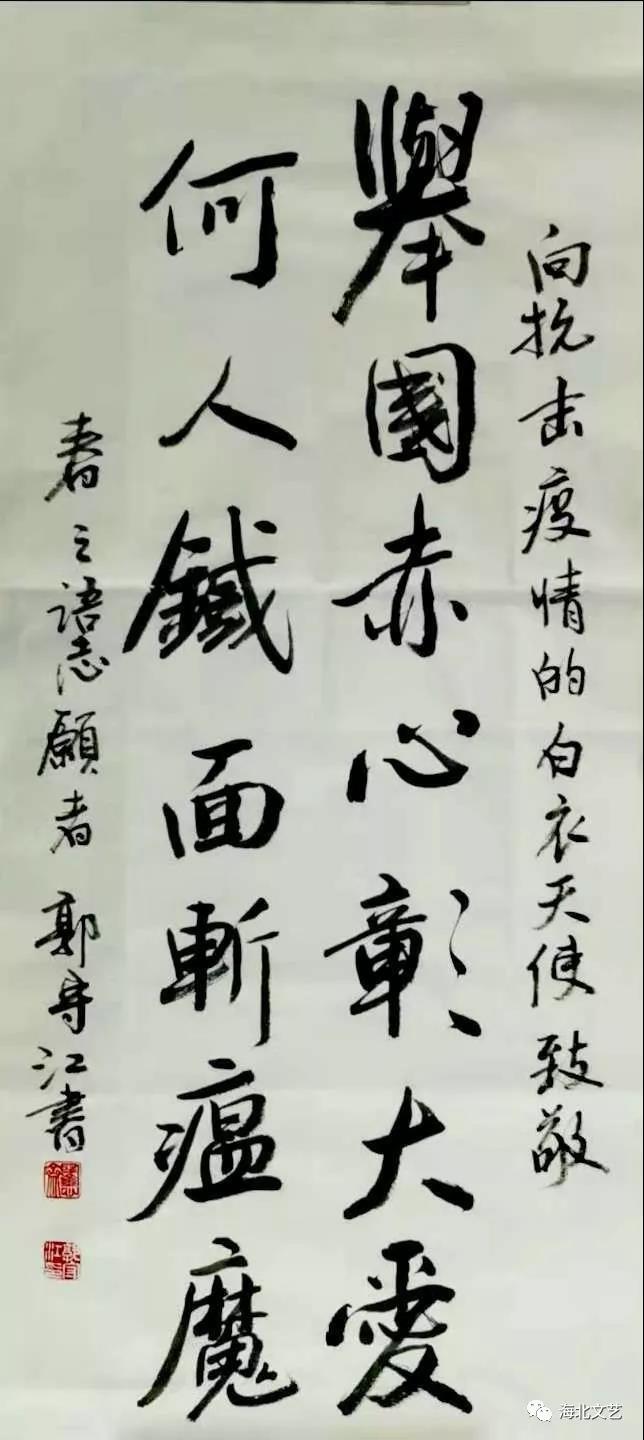 向抗击疫情的白衣天使致敬
舉國赤心彰大愛
何人鐵面斬瘟魔
春之语志願者 郭守江書
海北文艺